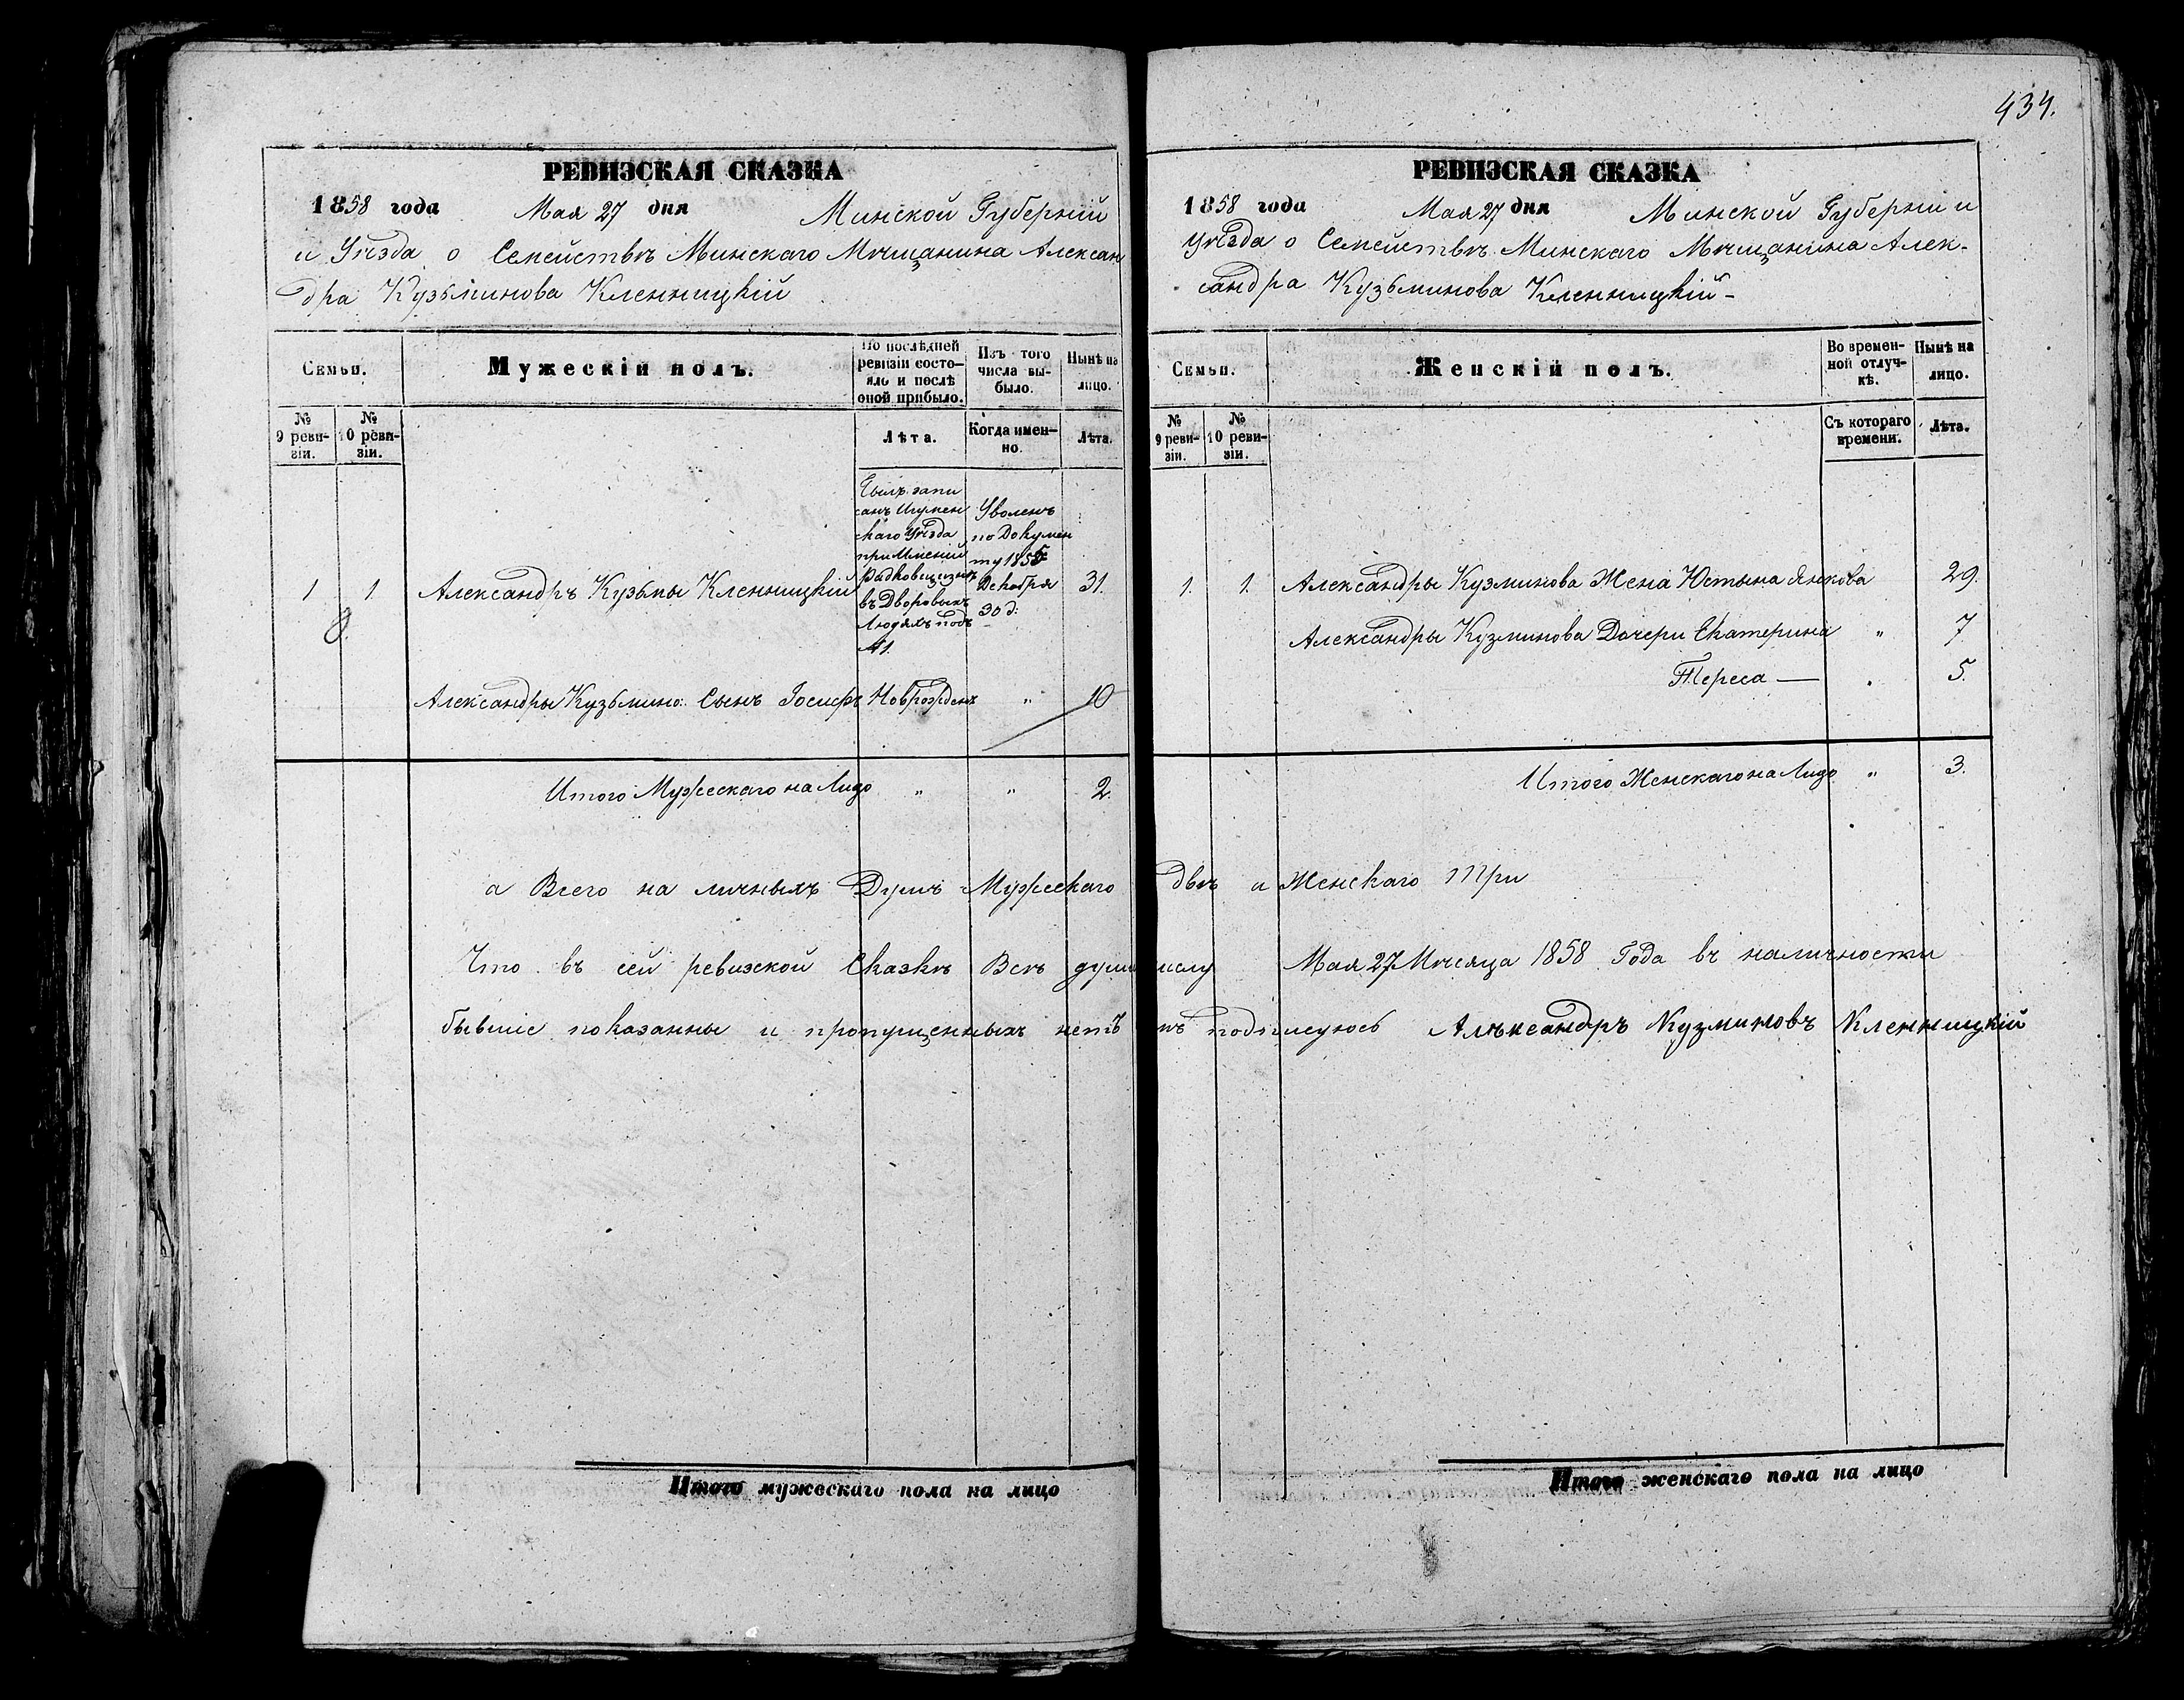 РЕВИЗСКАЯ СКАЗКА
1858 года Мая 27 дня Минской Губерніи
и Уѣзда о Семействѣ Минскаго Мѣщанина Алексан
дра Кузьминова Кленницкій
Семьи.
Мужескій полъ.
По послѣдней ревизіи состояло и послѣ оной прибыло.
Изъ того числа выбыло.
Нынѣ на лицо.
№ 9 ревизіи.
№ 10 ревизіи.
Лѣта.
Когда именно.
Лѣта.
Былъ запи
санъ Игумен
скаго Уѣзда
при Имѣніи
въ Дворовыхъ
Людяхъ подъ
№ 1.
Уволенъ
по Докумен
ту
Декабря
30 д:
1 1 Александръ Кузьмы Кленницкій 31.
Александры Кузьмино: Сынъ Іосифъ Новрожденъ " 10
Итого Мужескаго на Лицо " " 2.
а Всего на личныхъ Душъ Мужескаго
Что въ сей ревизской Сказкѣ Всѣ душ
бывшіе показанны и пропущенныхъ нетъ
Итого мужескаго пола на лицо
434.
РЕВИЗСКАЯ СКАЗКА
1858 года Мая 27 дня Минской Губерніи и
Уѣзда о Семействѣ Минскаго Мѣщанина Алек-
сандра Кузьминова Кленницкій-
Семьи.
Женскій полъ.
Во временной отлучкѣ.
Нынѣ на лицо.
№ 9 ревизіи.
№ 10 ревизіи.
Съ котораго времени.
Лѣта.
1. 1. Александры Кузминова Жена Юстына Янкова 29.
Александры Кузминова Дочери Екатерина " 7
Тереса — 5.
Итого Женскаго на Лицо " 3.
двѣ а Женскаго Три
Мая 27 Мѣсяца 1858 Года въ наличности
подписуюсь Алѣксандръ Кузминовъ Кленницкій
Итого женскаго пола на лицо